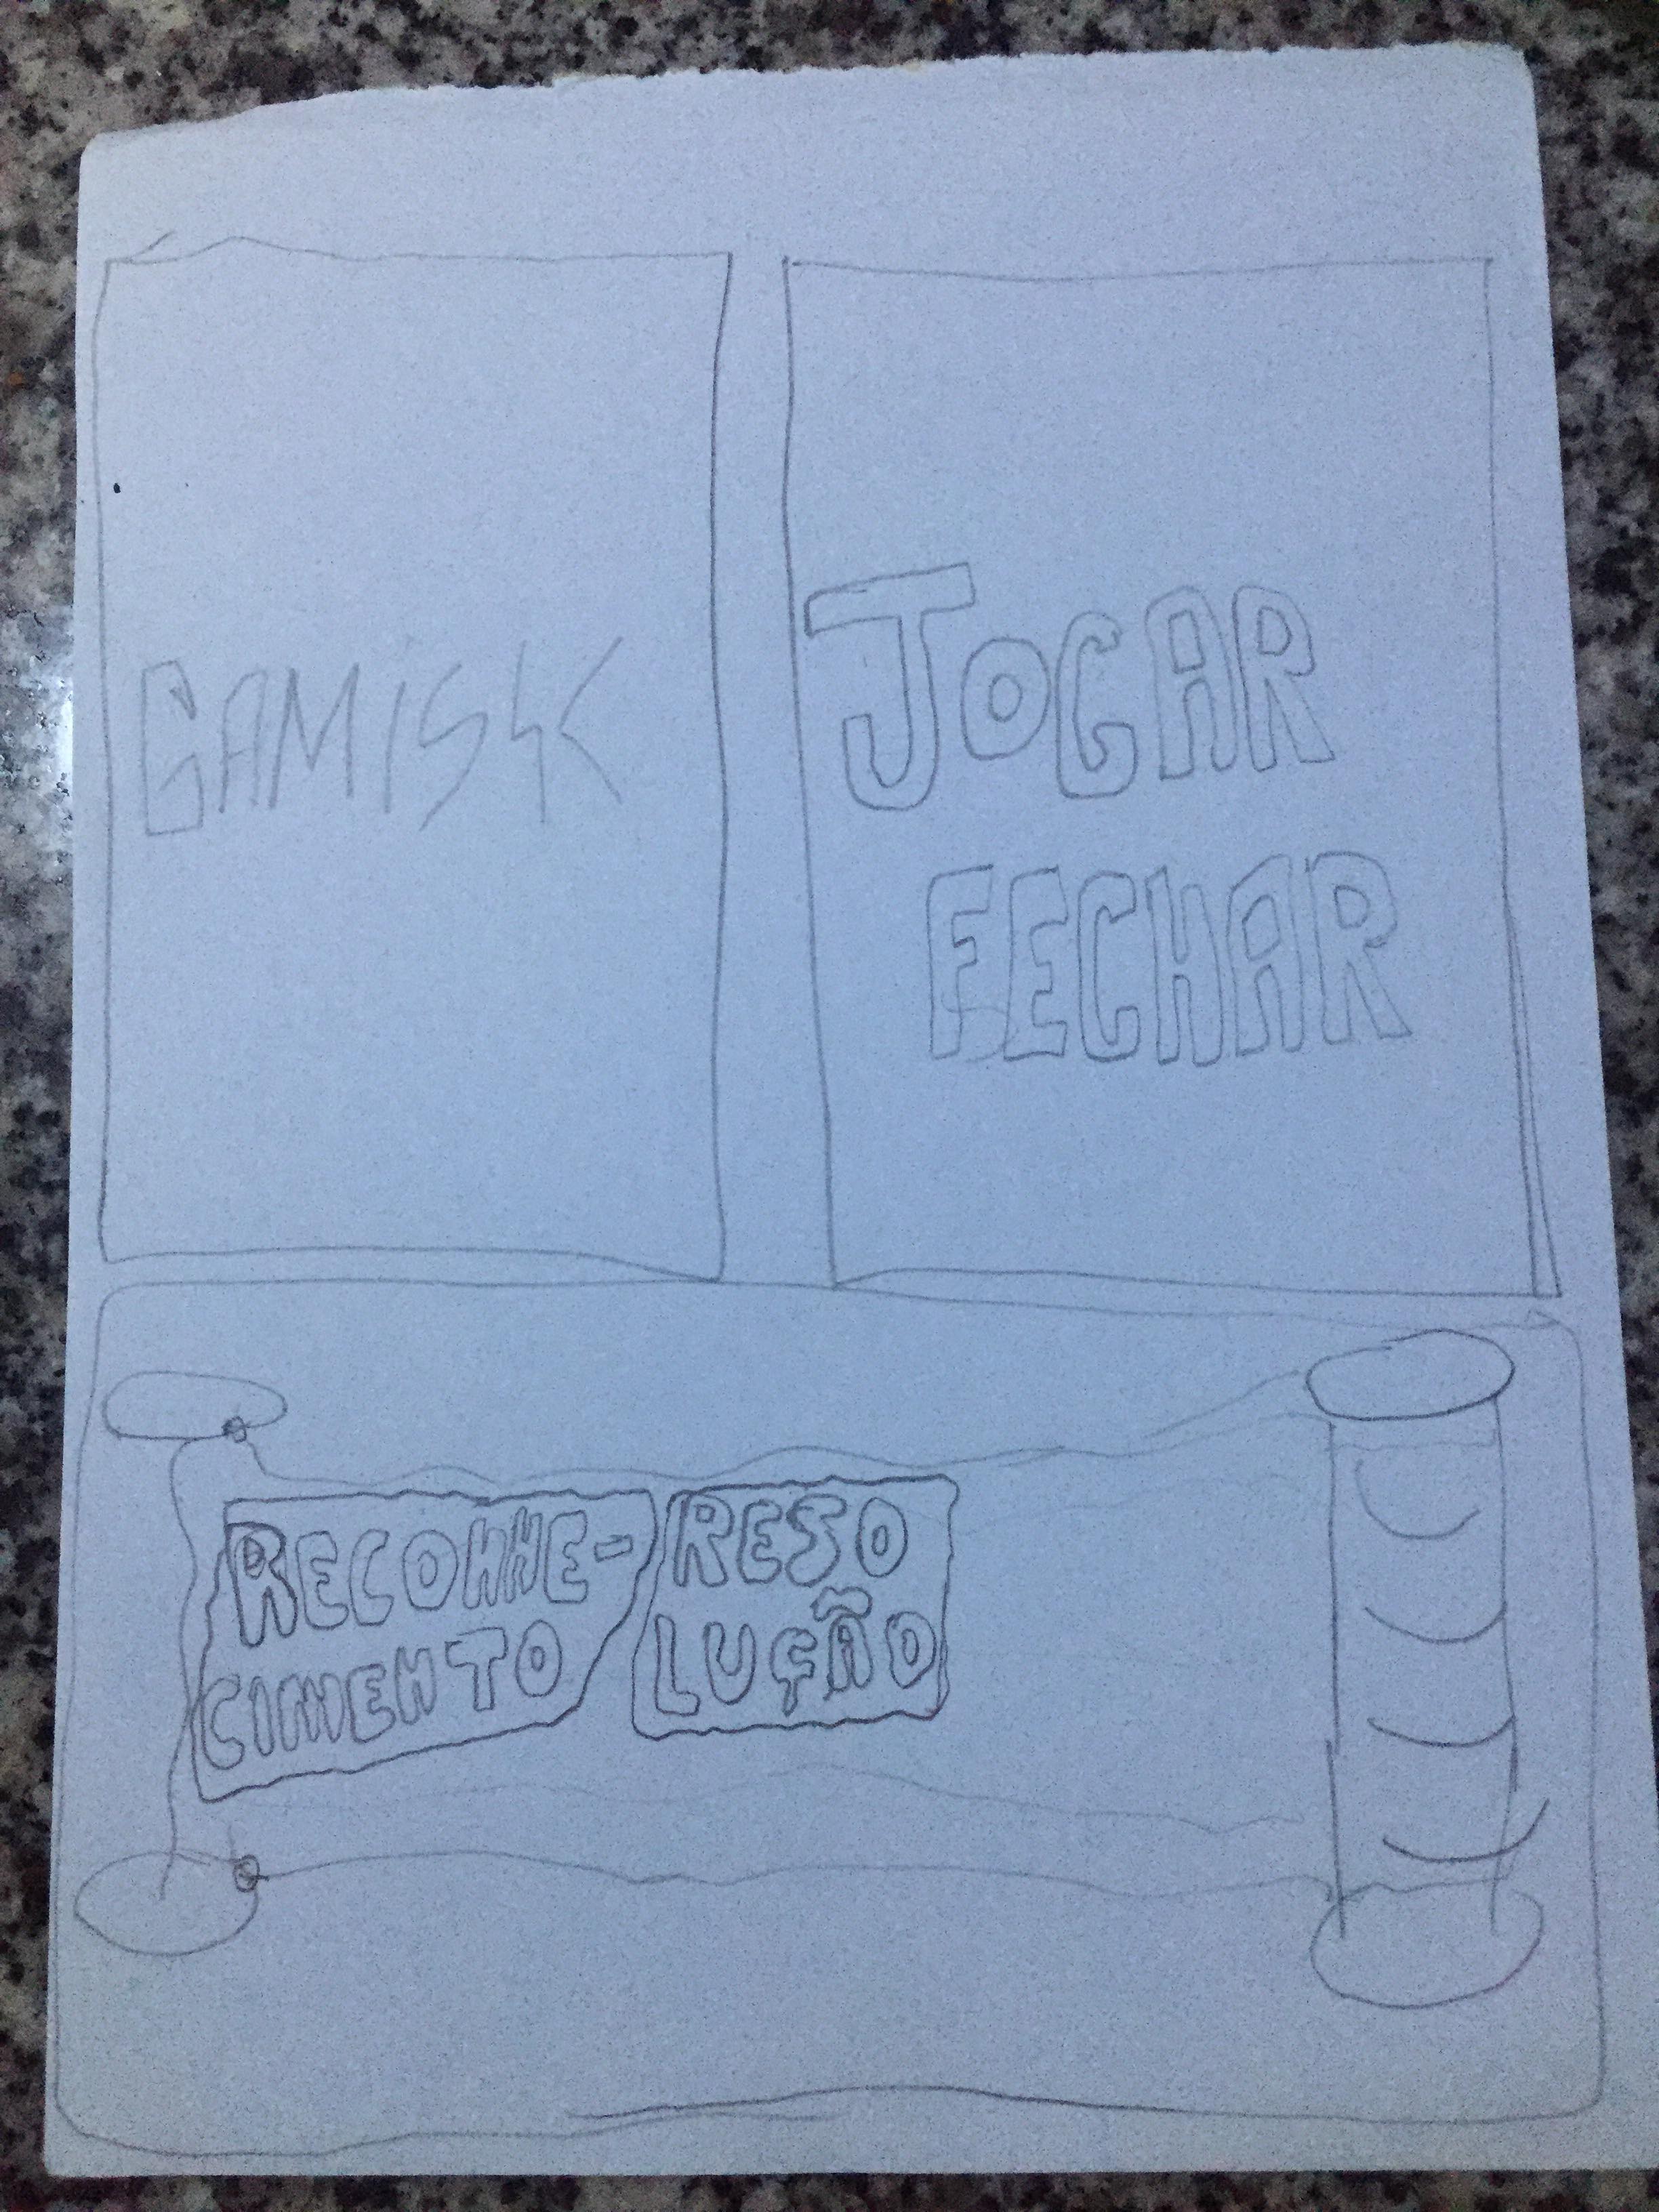 GAMISK
JOGAR
FECHAR
RECONHE-
CIMENTO
RESO
LUÇÃO